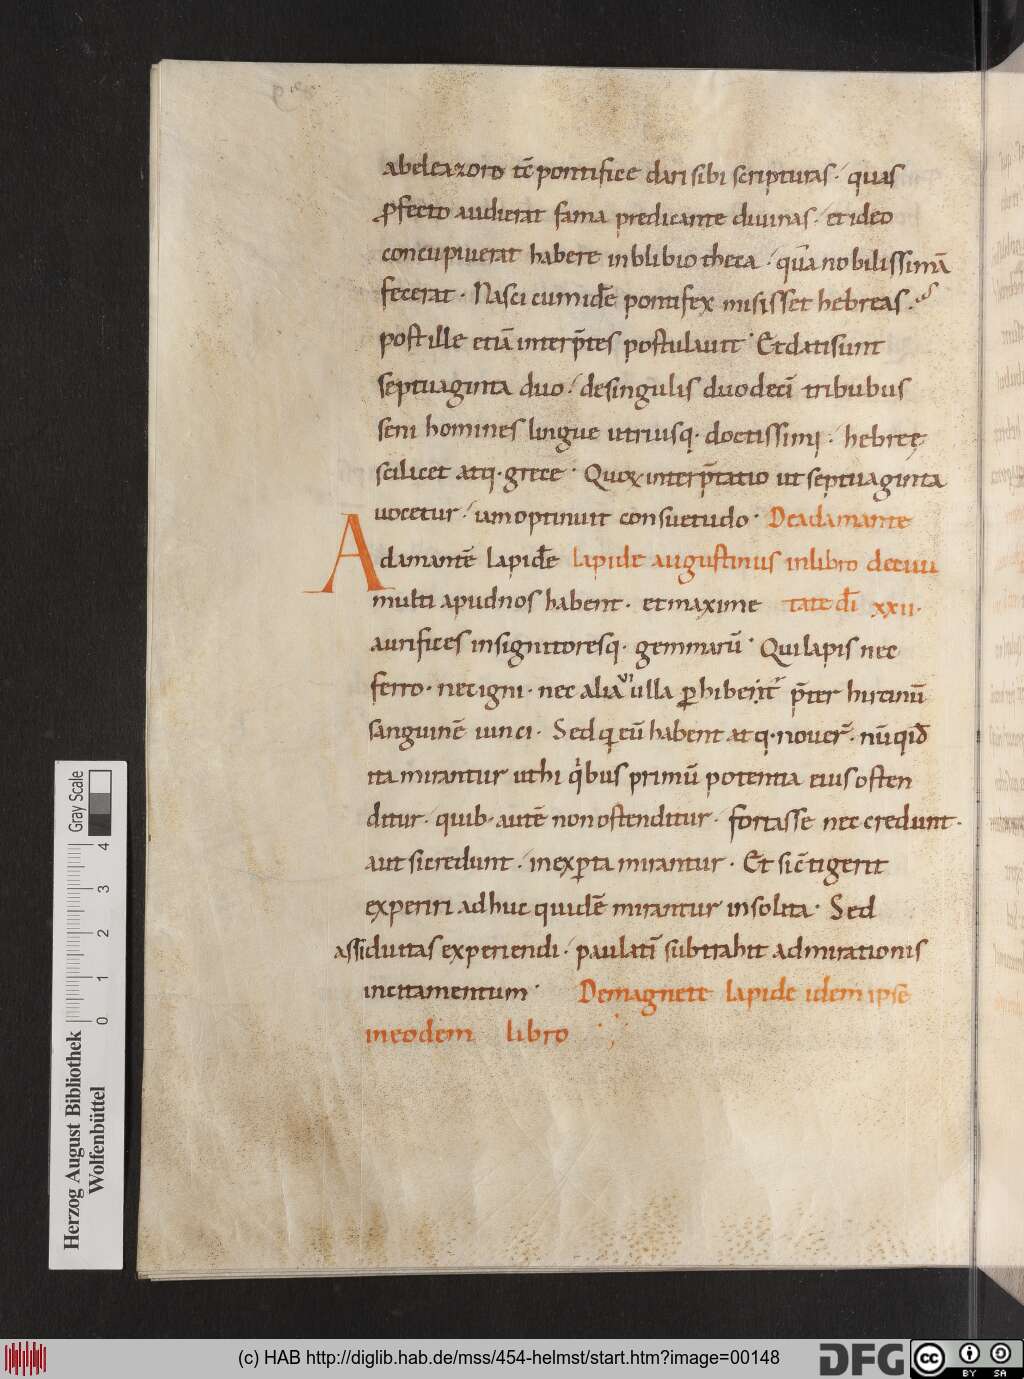 abeleazoro tē pontifice dari sibi scripturas· quas
ꝓfecto audierat fama predicante diuinas· et ideo
concupiuerat habere in blibiotheca· quā nobilissimā
fecerat· Nasci cum idē pontifex misisset hebreas· as
post ille etiā interp̄tes postulauit· Et dati sunt
septuaginta duo· de singulis duodecī tribubus
seni homines lingue utriusq· doctissimi· hebreę
scilicet atq· grece· Quoꝝ interp̄tatio ut septuaginta
uocetur· iam optinuit consuetudo· De adamante
Adamantē lapidē lapide augustinus in libro de ciui
multi apud nos habent· et maxime tate dī xxii·
aurifices insignitoresq· gemmarū· Qui lapis nec
ferro· nec igni· nec alia ui ulla ꝑhibent̄ p̄ter hircinū
sanguinē uinci· Sed q eū habent atq· nouer̄· nūqid
ita mirantur ut hi qibus primū potentia eius osten
ditur· quib· autē non ostenditur· fortasse nec credunt·
aut si credunt· inexꝑta mirantur· Et si c̄tigerit
experiri adhuc quidē mirantur insolita· Sed
assiduitas experiendi· paulatī subtrahit admirationis
incitamentum· De magnete lapide idem ipse
in eodem libro
Gray Scale
0 1 2 3 4
Herzog August Bibliothek
Wolfenbüttel
(c) HAB http://diglib.hab.de/mss/454-helmst/start.htm?image=00148
DFG
cc BY SA